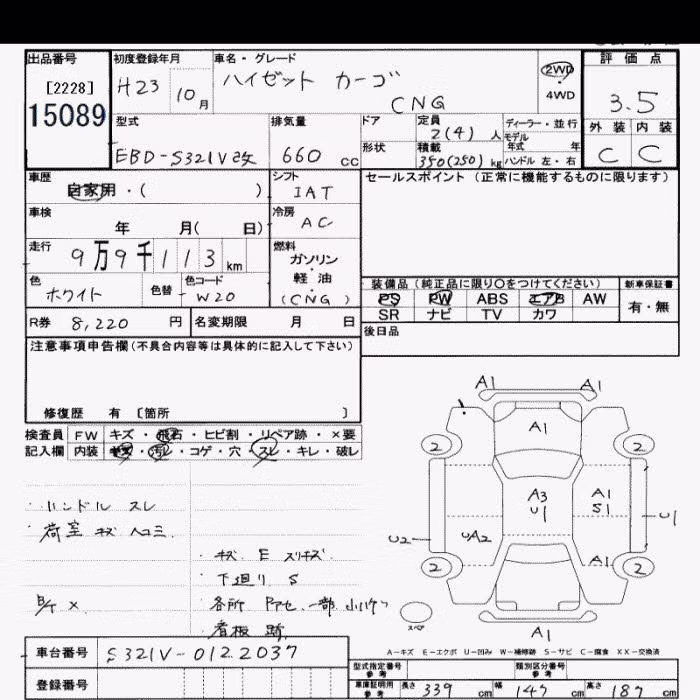 出品番号
[2228]
15089
初度登録年月
H23 10月
車名・グレード
ハイゼット カーゴ
CNG
2WD
4WD
評価点
3.5
外装 内装
C C
型式
EBD-S321V改
排気量
660 cc
ドア
形状
定員
2(4) 人
積載
350(250) kg
ディーラー・並行
モデル
年式 年
ハンドル 左・右
車歴
自家用・( )
シフト
IAT
セールスポイント (正常に機能するものに限ります)
車検
年 月( 日)
冷房
AC
走行
9万9千113km
燃料
ガソリン
・
軽油
(CNG)
色
ホワイト
色替
色コード
W20
装備品(純正品に限り○をつけてください)
新車保証書
PS PW ABS エアB AW
有・無
SR ナビ TV カワ
R券 8,220 円
名変期限 月 日
後日品
注意事項申告欄(不具合内容等は具体的に記入して下さい)
修復歴 有 [箇所 ]
検査員
記入欄
FW キズ・飛石・ヒビ割・リペア跡・×要
内装 キズ・汚レ・コゲ・穴・スレ・キレ・破レ
・ハンドル スレ
・荷室 キズ ヘコミ
・キズ E スリキズ
・下廻り S
B/T ×
・各所 アセ、一部
看板 跡
A1 A1
A1
2 2
A3
U1
A1
S1
U1
U2
UA2
A1
2 2
スペア
A1
A-キズ E-エクボ U-凹み W-補修跡 S-サビ C-腐食 XX-交換済
車台番号
S321V-0122037
登録番号
型式指定番号
参考
類別区分番号
参考
車庫証明用
参考
長さ 339 cm 幅 147 cm 高さ 187 cm